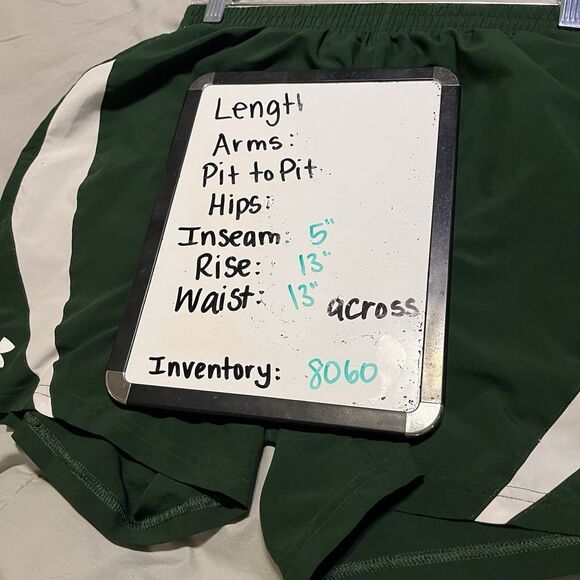 Length
Arms:
Pit to Pit
Hips:
Inseam: 5"
Rise: 13"
Waist: 13" across
Inventory: 8060